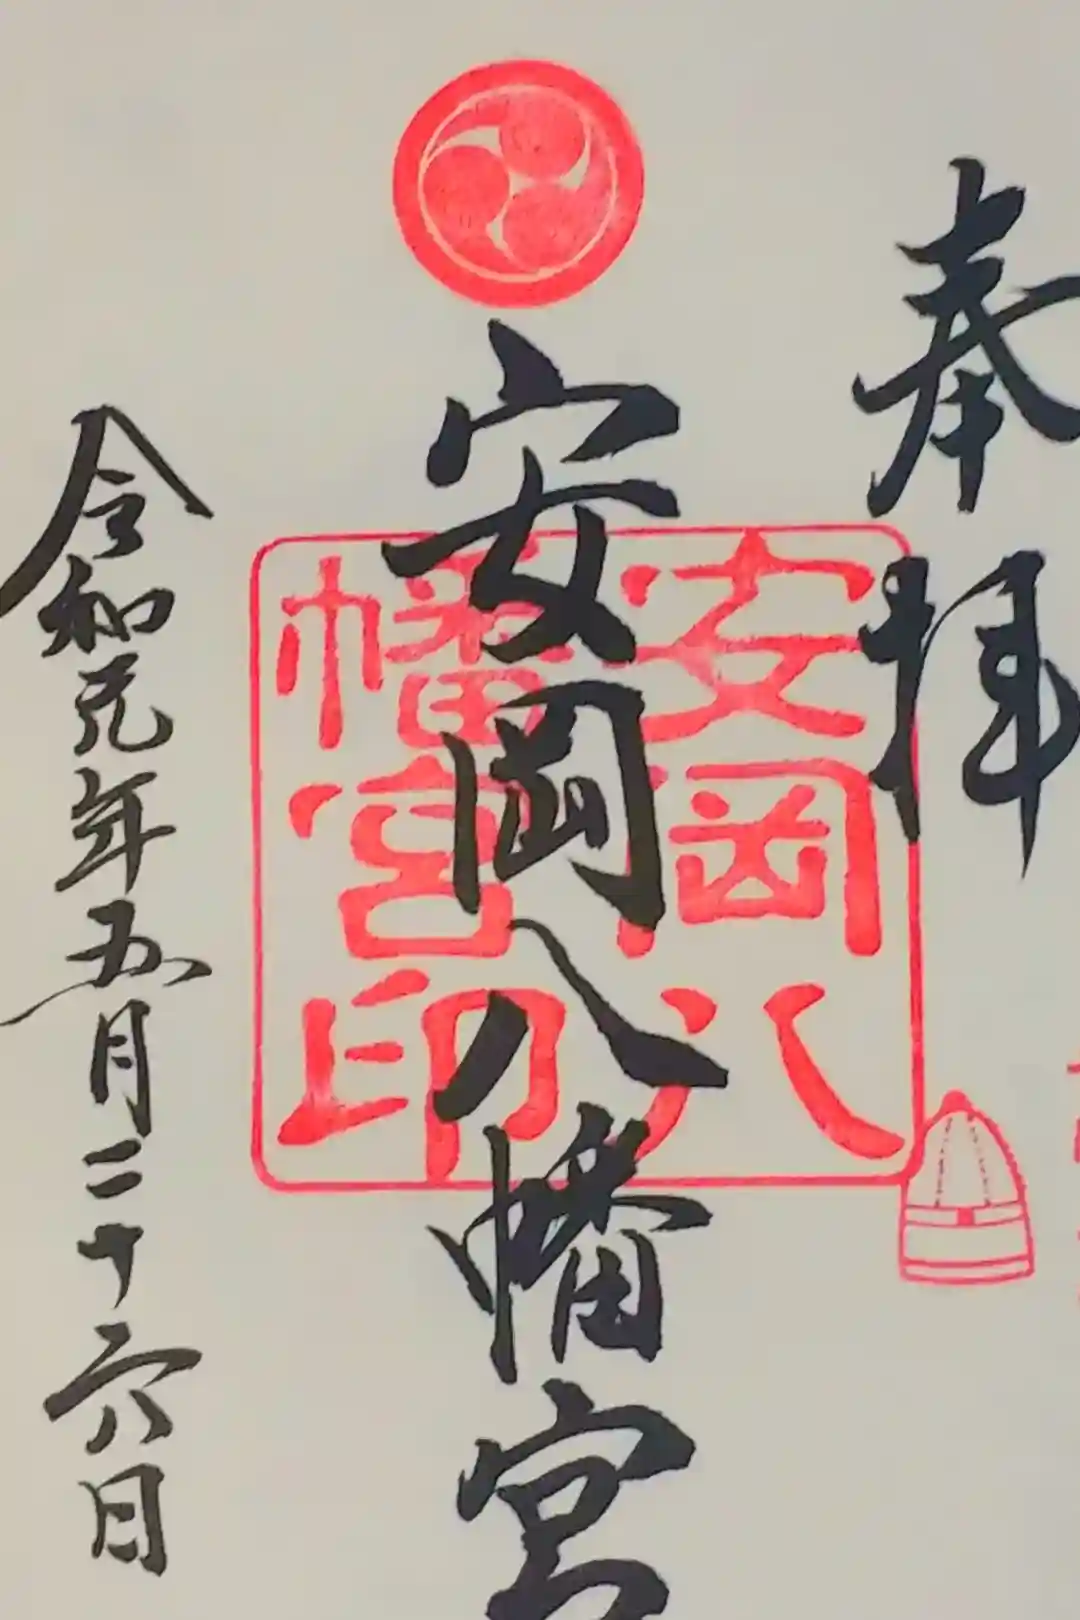 奉拝
安岡八幡宮
安岡八
幡宮印
令和元年五月二十六日